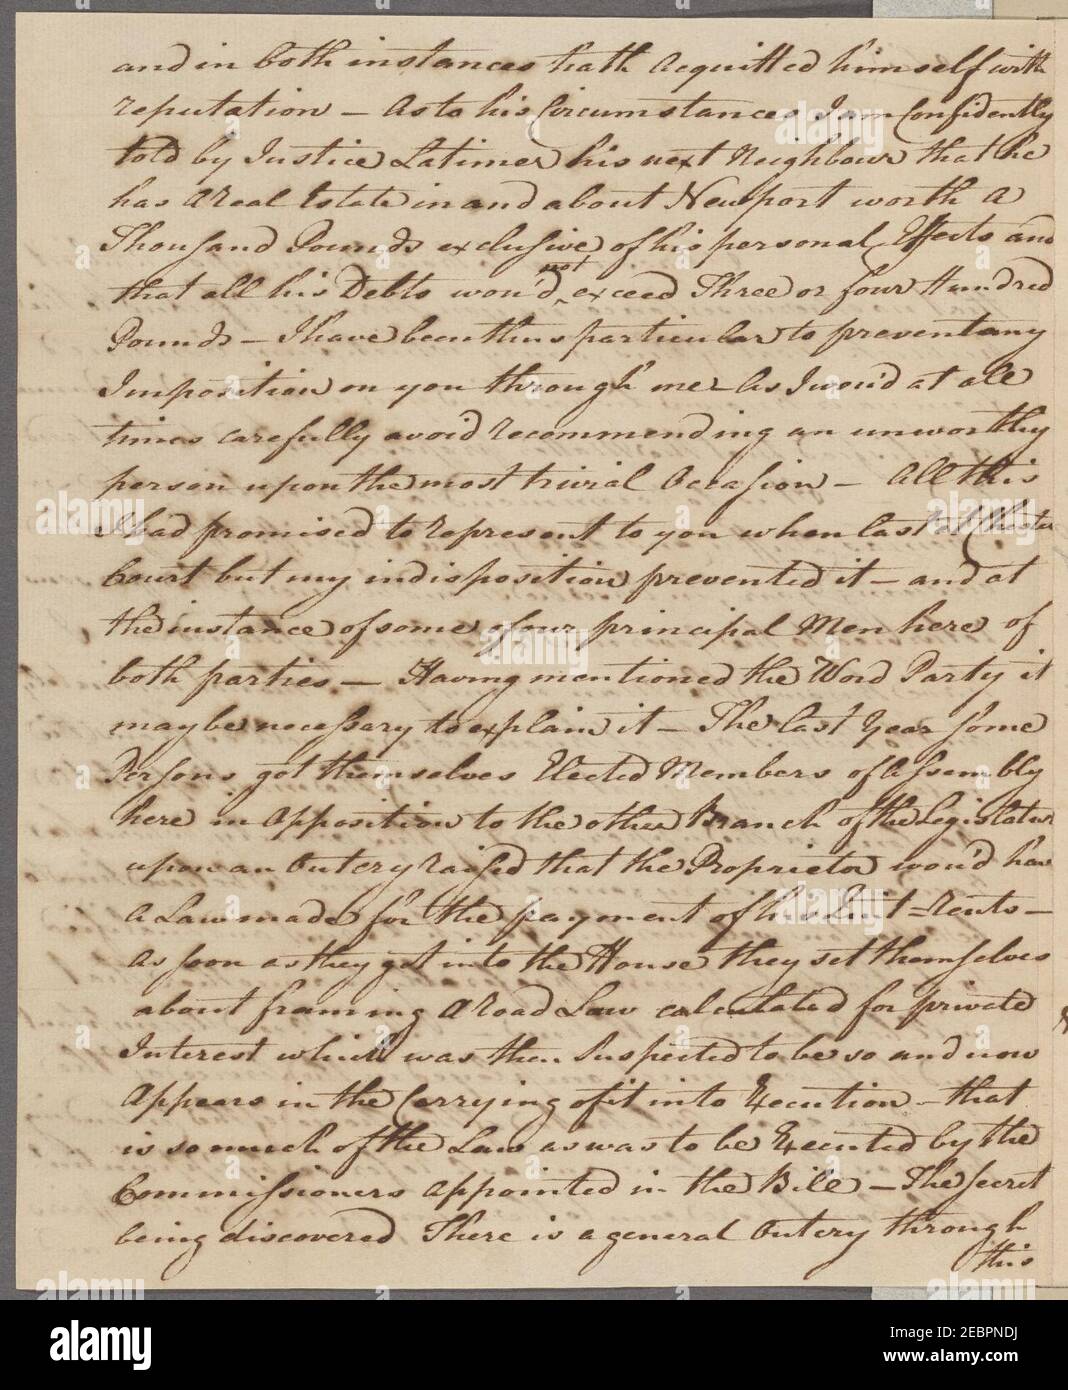 and in both instances hath Acquitted himself with
reputation – As to his Circumstances I am Confidently
told by Justice Latimer his next Neighbour that he
has a real Estate in and about Newport worth A
Thousand Pounds exclusive of his personal Effects and
not
that all his Debts wou'd ‸ exceed Three or four Hundred
Pounds – I have been thus particular to prevent any
Imposition on you through me – As I wou'd at all
times carefully avoid recommending an unworthy
person upon the most trivial Occasion – All this
I had promised to represent to you when last at Chester
Court but my indisposition prevented it – and at
the instance of some of our principal Men here of
both parties – Having mentioned the Word Party it
may be necessary to explain it – The last Year some
Persons got themselves Elected Members of Assembly
here in Opposition to the other Branch of the Legislature
upon an Outcry raised that the Proprietor wou'd have
a Law made for the payment of his Quit=rents –
As soon as they got into the House they set themselves
about framing a road Law calculated for private
Interest which was then Suspected to be so and now
Appears in the Carrying of it into Execution – that
is so much of the Law as was to be Executed by the
Commissioners appointed in the Bill – The secret
being discovered There is a general Outcry through
this
alamy
Image ID: 2EBPNDJ
www.alamy.com